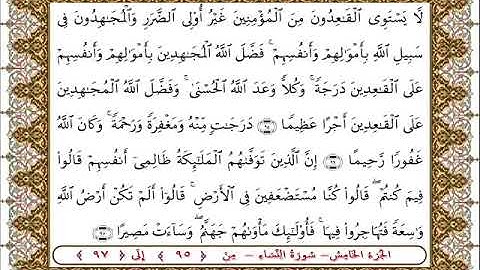 لَّا يَسْتَوِى الْقَـٰعِدُونَ مِنَ الْمُؤْمِنِينَ غَيْرُ أُو۟لِى الضَّرَرِ وَالْمُجَـٰهِدُونَ فِى
سَبِيلِ اللَّهِ بِأَمْوَٰلِهِمْ وَأَنفُسِهِمْ ۚ فَضَّلَ اللَّهُ الْمُجَـٰهِدِينَ بِأَمْوَٰلِهِمْ وَأَنفُسِهِمْ
عَلَى الْقَـٰعِدِينَ دَرَجَةً ۚ وَكُلًّا وَعَدَ اللَّهُ الْحُسْنَىٰ ۚ وَفَضَّلَ اللَّهُ الْمُجَـٰهِدِينَ
عَلَى الْقَـٰعِدِينَ أَجْرًا عَظِيمًا ٩٥ دَرَجَـٰتٍ مِّنْهُ وَمَغْفِرَةً وَرَحْمَةً ۚ وَكَانَ اللَّهُ
غَفُورًا رَّحِيمًا ٩٦ إِنَّ الَّذِينَ تَوَفَّىٰهُمُ الْمَلَـٰٓئِكَةُ ظَالِمِىٓ أَنفُسِهِمْ قَالُوا۟
فِيمَ كُنتُمْ ۖ قَالُوا۟ كُنَّا مُسْتَضْعَفِينَ فِى الْأَرْضِ ۚ قَالُوٓا۟ أَلَمْ تَكُنْ أَرْضُ اللَّهِ
وَٰسِعَةً فَتُهَاجِرُوا۟ فِيهَا ۚ فَأُو۟لَـٰٓئِكَ مَأْوَىٰهُمْ جَهَنَّمُ ۖ وَسَآءَتْ مَصِيرًا ٩٧
الجزء الخامس – سورة النساء – من ﴿ ٩٥ ﴾ إلى ﴿ ٩٧ ﴾